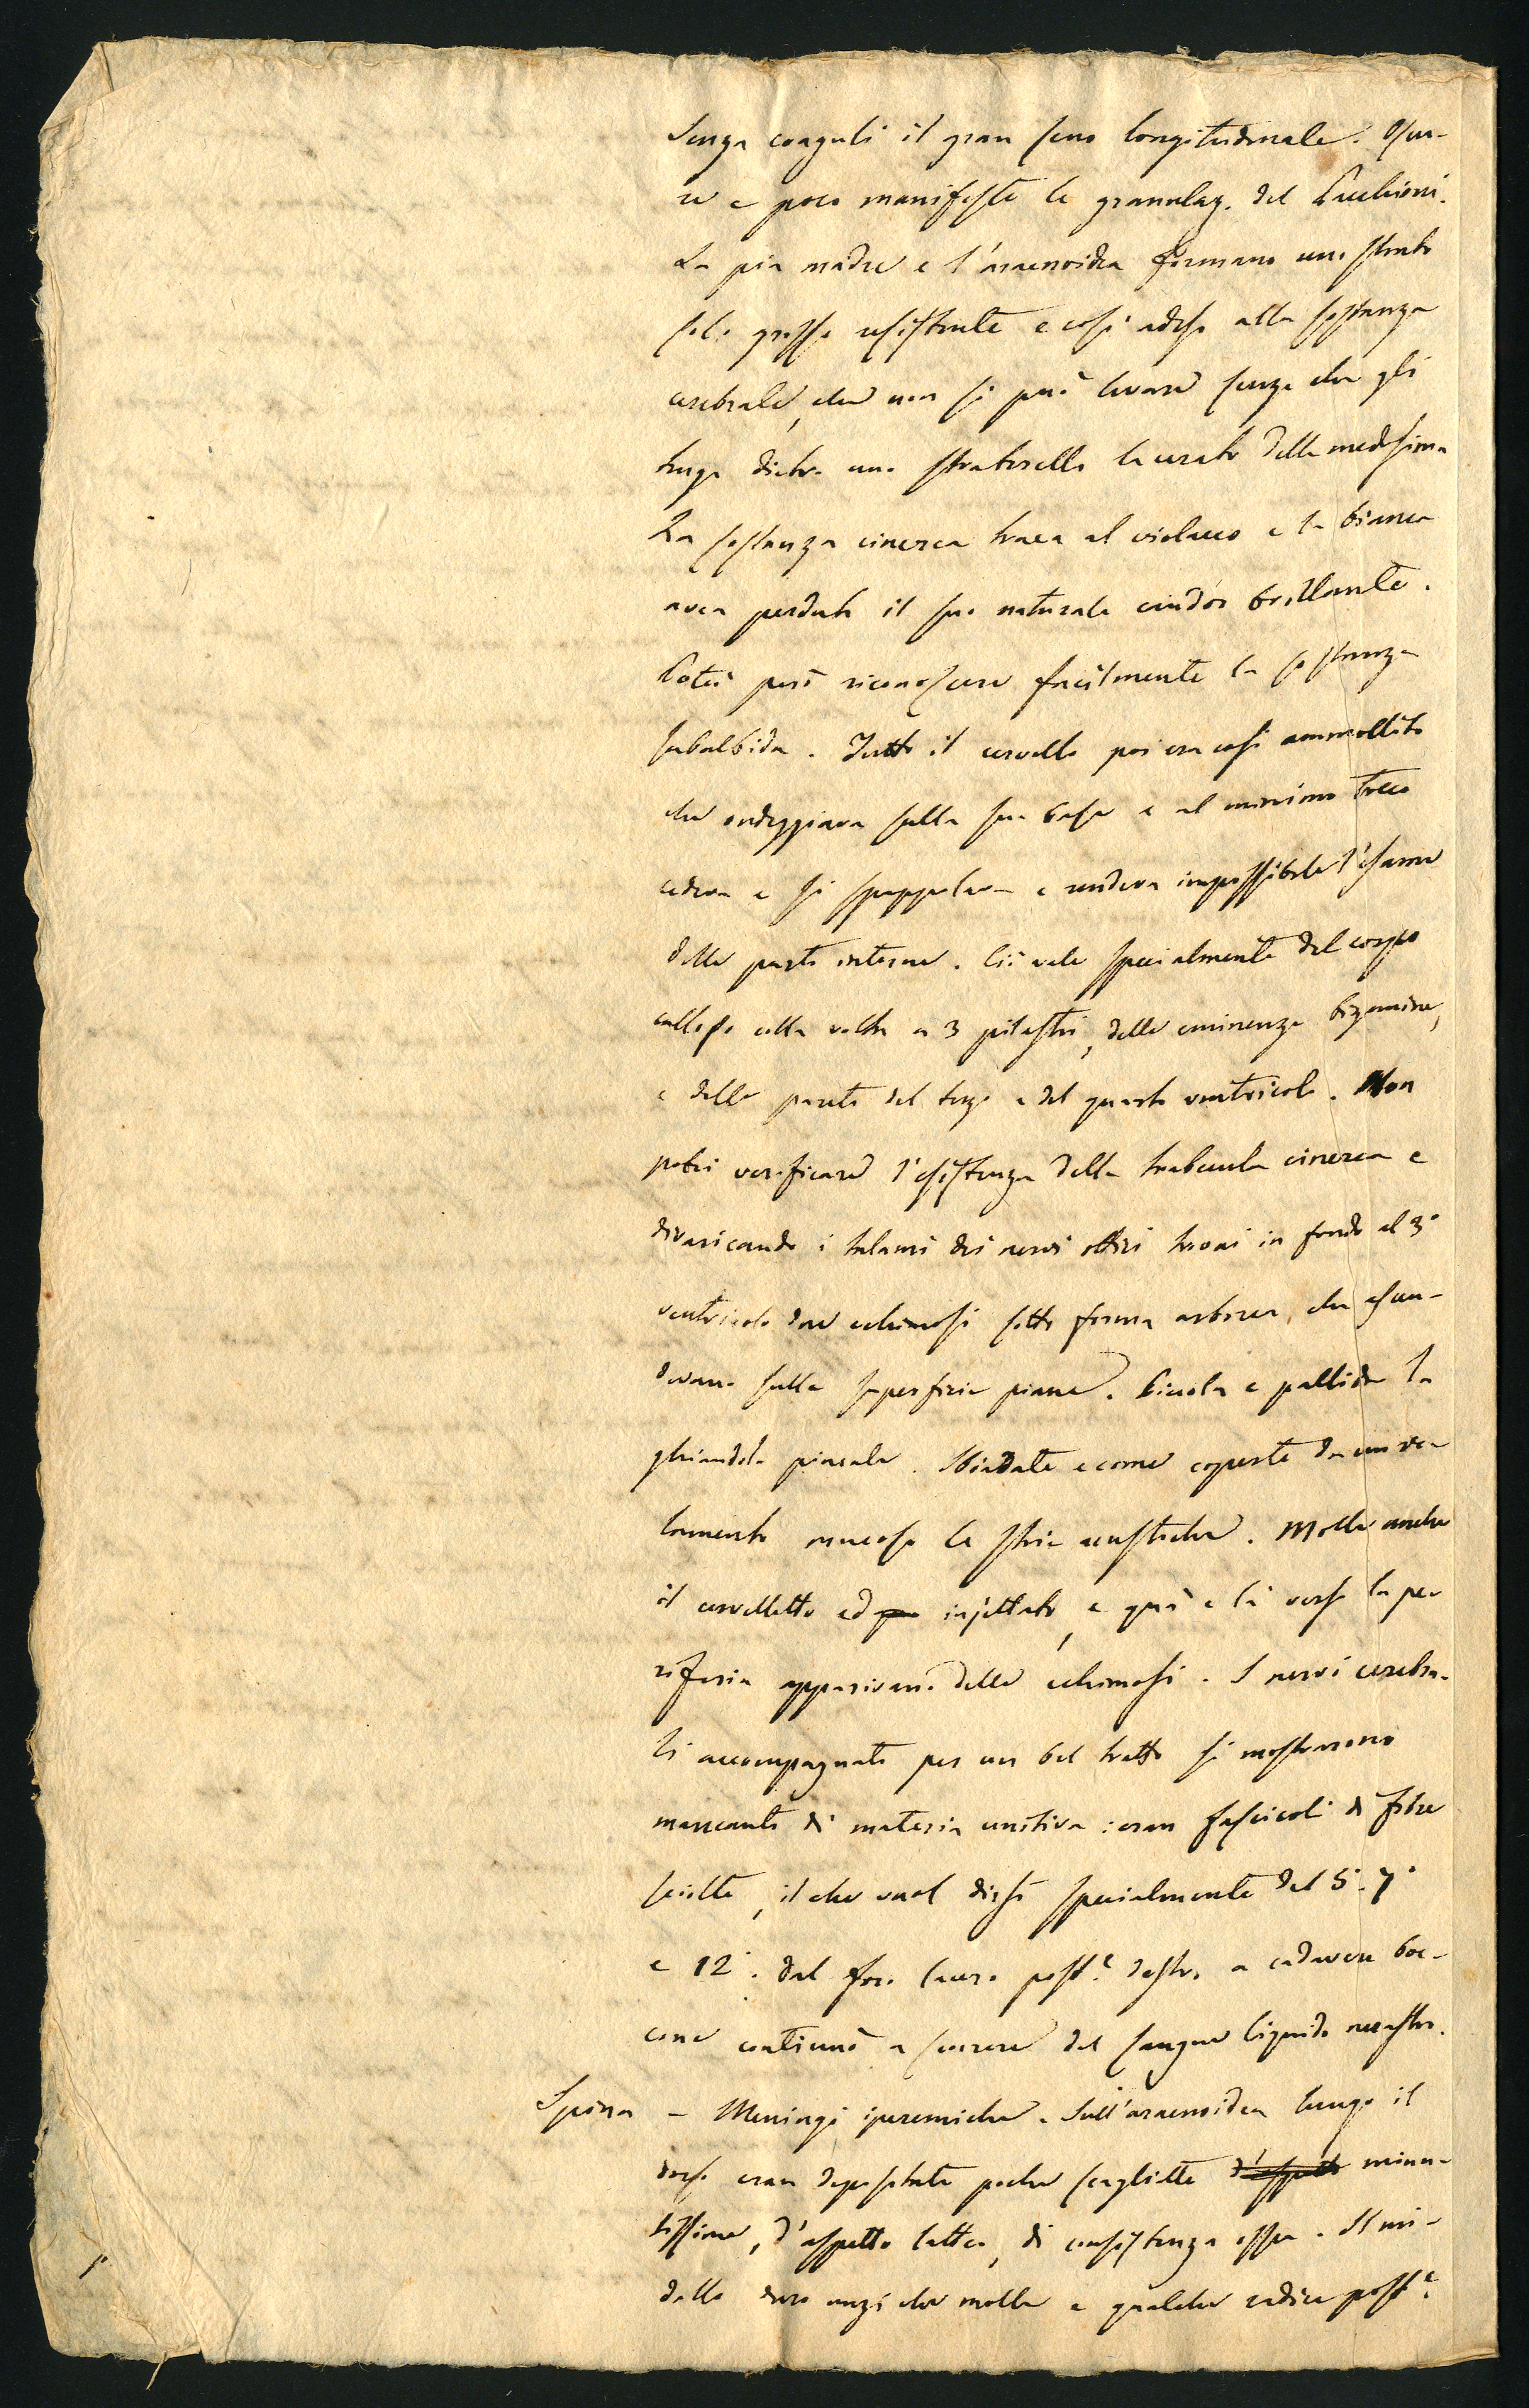 Senza coaguli il gran seno longitudinale. Oscu-
re e poco manifeste le granulaz. del Pacchioni.
La pia madre e l'aracnoidea formano uno strato
solo grosso resistente e così adeso alla sostanza
cerebrale, che non si può levare senza che gli
tenga dietro uno straterello lacerato della medesima
La sostanza cinerea traea al violaceo e la bianca
avea perduto il suo naturale candor brillante.
Potei però riconoscere facilmente la sostanza
subalbida. Tutto il cervello poi era così ammollito
che ondeggiava sulla sua base e al minimo tocco
cedeva e si spappolava e rendeva impossibile l'esame
delle parti interne. Ciò vale specialmente del corpo
calloso colla volta a 3 pilastri, delle eminenze bigemine,
e delle pareti del terzo e del quarto ventricolo. Non
potei verificare l'esistenza della trabecula cinerea e
divaricando i talami dei nervi ottici trovai in fondo al 3°
ventricolo due echimosi sotto forma arborea, che
sulla superficie piana. Piccola e pallida la
ghiandola pineale. Sbiadate e come coperte da un ve-
lamento mucoso le strie acustiche. Molle anche
il cervelletto ed injettato, e quà e là verso la pe-
riferia apparivano delle echimosi. I nervi cerebra-
li accompagnati per un bel tratto si mostrarono
mancanti di materia unitiva: eran fascicoli di fibre
sciolte, il che vuol dirsi specialmente del 5° 7°
e 12°. Dal foro lacero post.e destro a cadavere boc-
cone continuò a scorrere del sangue liquido nerastro.
Spina – Meningi iperemiche. Sull'aracnoidea lungo il
dorso eran depositate poche scagliette d'aspetto minu-
tissime, d'aspetto latteo, di consistenza ossea. Il mi-
dollo duro anzi che molle e qualche radice post.e